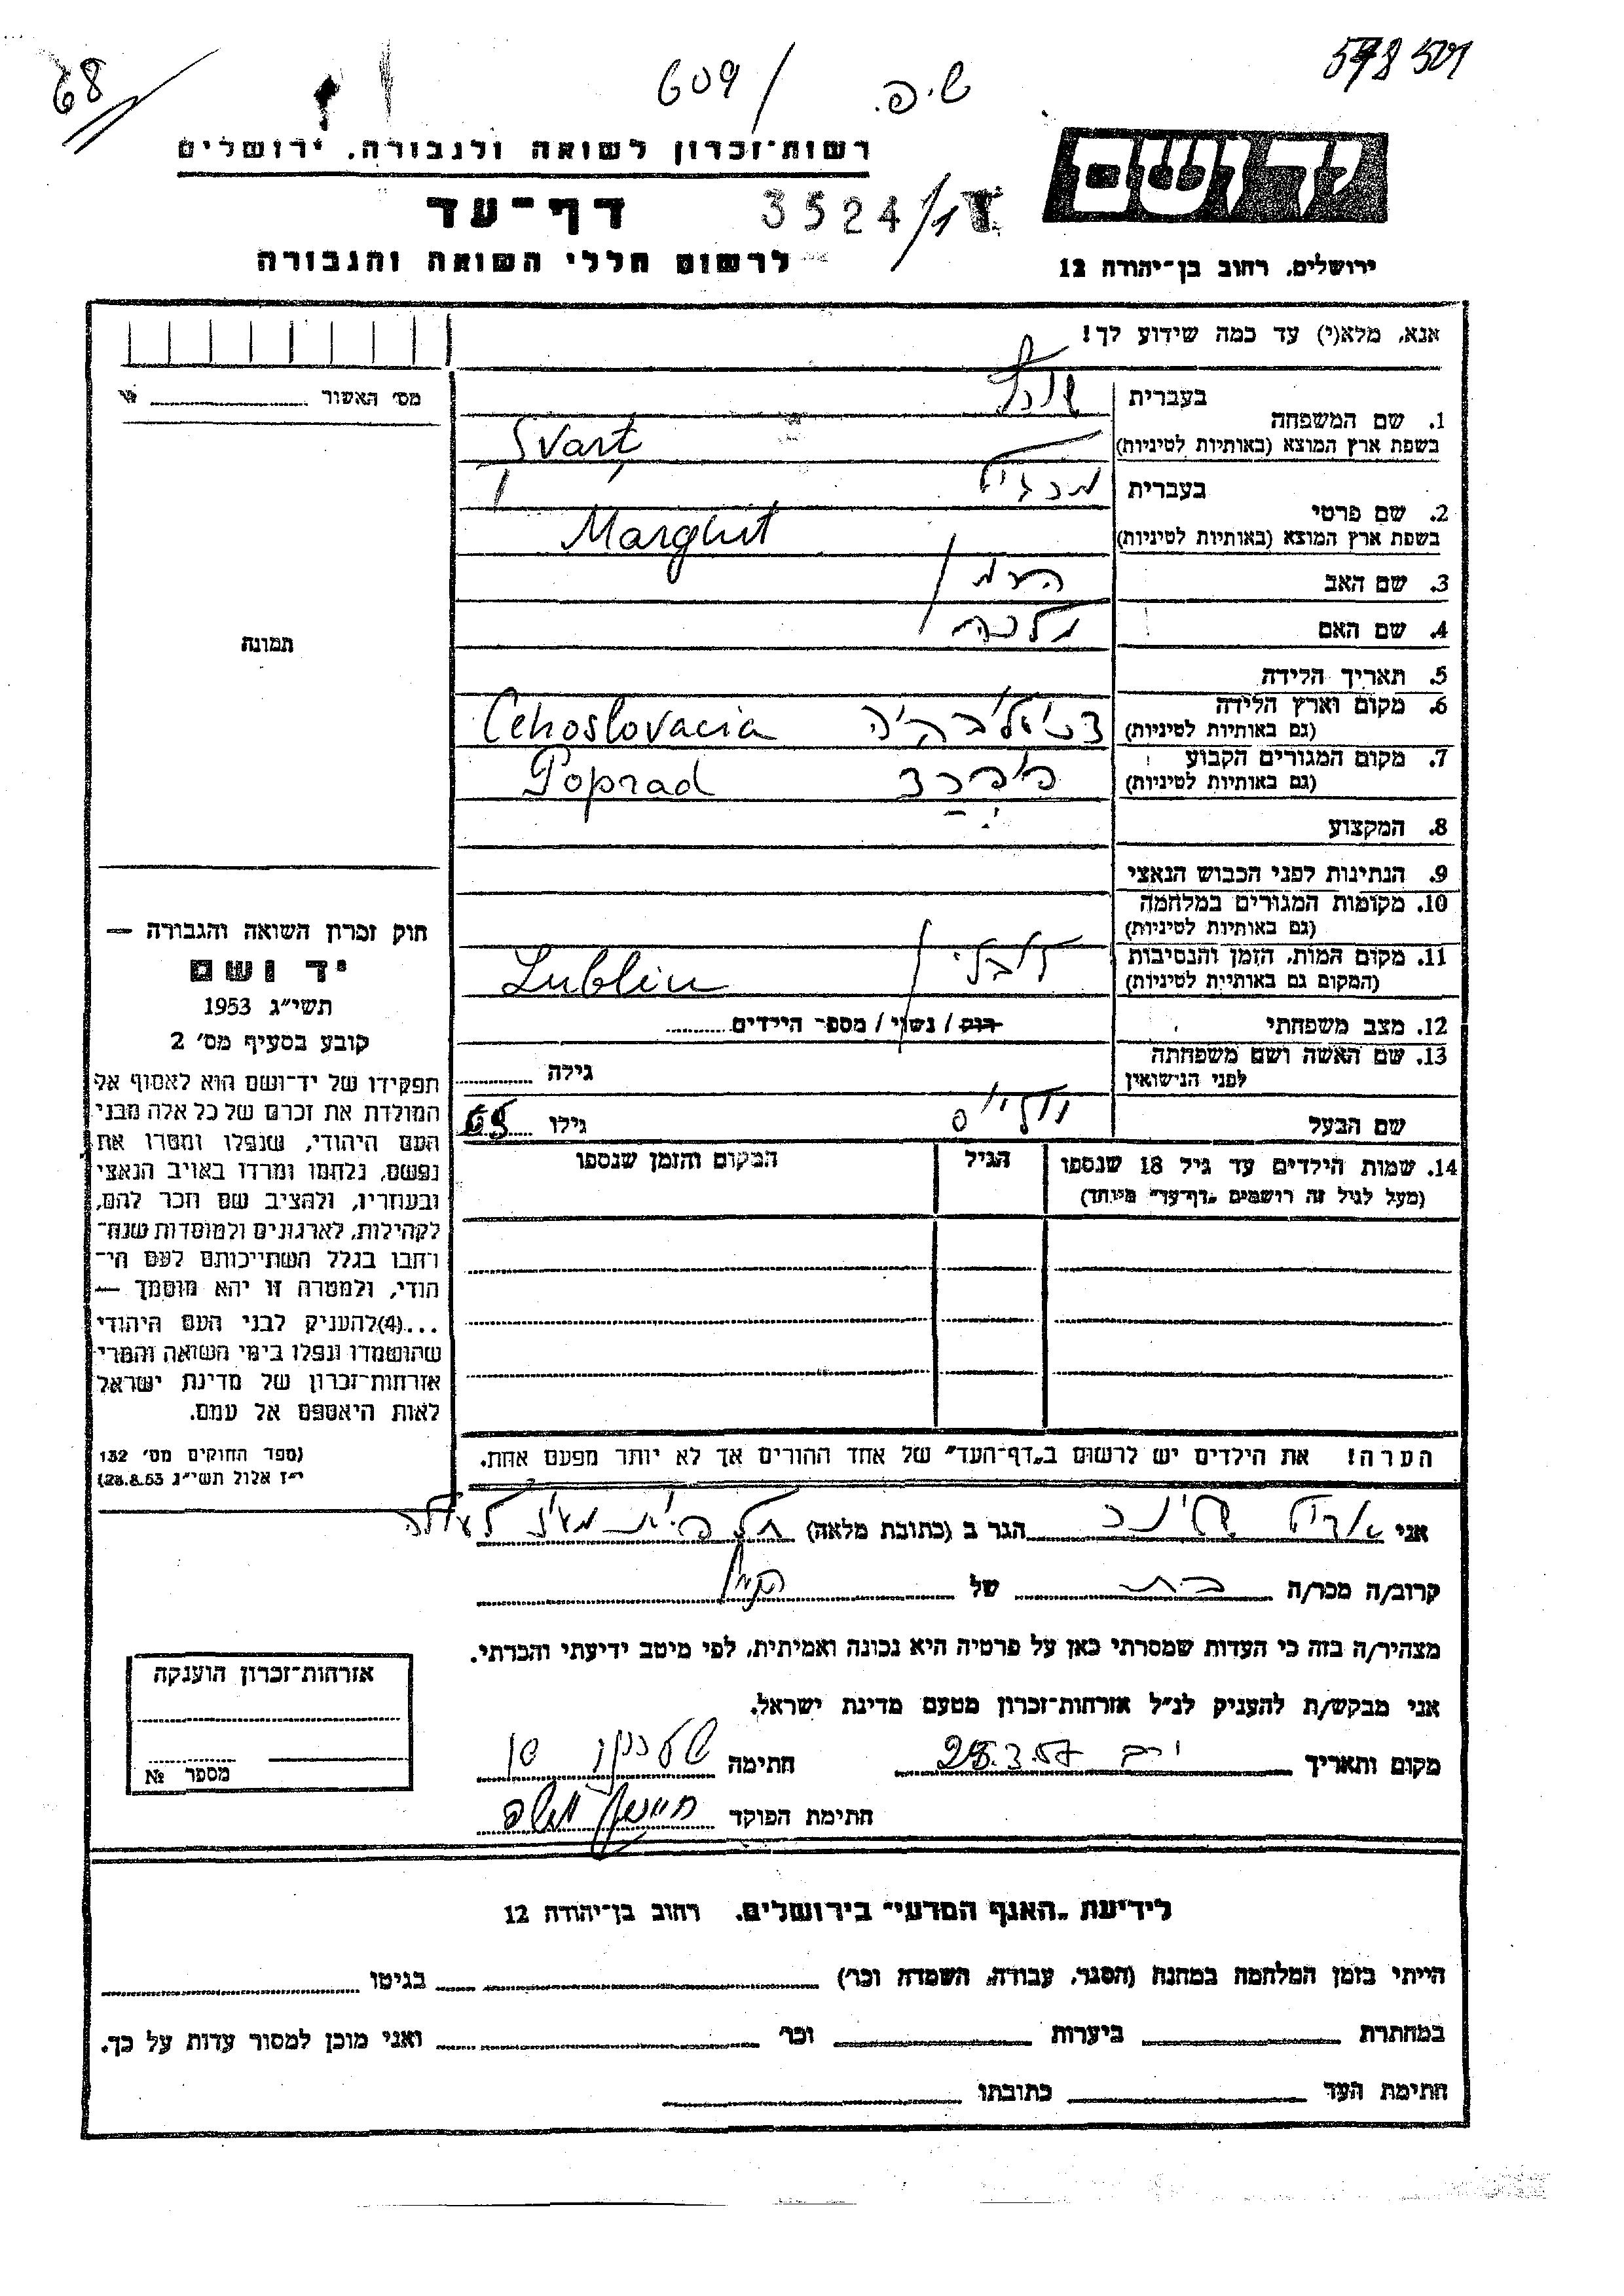 68
609/
ש.פ.
578 501
רשות־זכרון לשואה ולגבורה, ירושלים
יד ושם
דף־עד
3524/1
לרשום חללי השואה והגבורה
ירושלים, רחוב בן־יהודה 12
אנא, מלא(י) עד כמה שידוע לך!
מס' האשור
1. שם המשפחה
בעברית
בשפת ארץ המוצא (באותיות לטיניות) Svarț
2. שם פרטי
בעברית מרגיט
בשפת ארץ המוצא (באותיות לטיניות) Marghit
3. שם האב
4. שם האם מלכה
5. תאריך הלידה
6. מקום וארץ הלידה
(גם באותיות לטיניות) Cehoslovacia
7. מקום המגורים הקבוע
(גם באותיות לטיניות) פופרד Poprad
8. המקצוע
9. הנתינות לפני הכבוש הנאצי
10. מקומות המגורים במלחמה
(גם באותיות לטיניות)
11. מקום המות, הזמן והנסיבות
(המקום גם באותיות לטיניות) לובלין Lublin
12. מצב משפחתי רוק / נשוי / מספר הילדים
13. שם האשה ושם משפחתה
לפני הנישואין גילה
שם הבעל גילו 65
14. שמות הילדים עד גיל 18 שנספו הגיל המקום והזמן שנספו
(מעל לגיל זה רושמים „דף־עד" מיוחד)
הערה! את הילדים יש לרשום ב„דף־העד" של אחד ההורים אך לא יותר מפעם אחת.
תמונה
חוק זכרון השואה והגבורה —
יד ושם
תשי״ג 1953
קובע בסעיף מס' 2
תפקידו של יד־ושם הוא לאסוף אל
המולדת את זכרם של כל אלה מבני
העם היהודי, שנפלו ומסרו את
נפשם, נלחמו ומרדו באויב הנאצי
ובעוזריו, ולהציב שם וזכר להם,
לקהילות, לארגונים ולמוסדות שנח־
רבו בגלל השתייכותם לעם הי־
הודי, ולמטרה זו יהא מוסמך —
...(4)להעניק לבני העם היהודי
שהושמדו ונפלו בימי השואה והמרי
אזרחות־זכרון של מדינת ישראל
לאות היאספם אל עמם.
(ספר החוקים מס' 132
י״ז אלול תשי״ג 28.8.53)
אני הגר ב (כתובת מלאה)
קרוב/ה מכר/ה בת של
מצהיר/ה בזה כי העדות שמסרתי כאן על פרטיה היא נכונה ואמיתית, לפי מיטב ידיעתי והכרתי.
אני מבקש/ת להעניק לנ״ל אזרחות־זכרון מטעם מדינת ישראל.
מקום ותאריך 28.3.57 חתימה
חתימת הפוקד
אזרחות־זכרון הוענקה
מספר №
לידיעת „האגף המדעי" בירושלים, רחוב בן־יהודה 12
הייתי בזמן המלחמה במחנה (הסגר, עבודה, השמדה וכו') בגיטו
במחתרת ביערות וכו' ואני מוכן למסור עדות על כך.
חתימת העד כתובתו